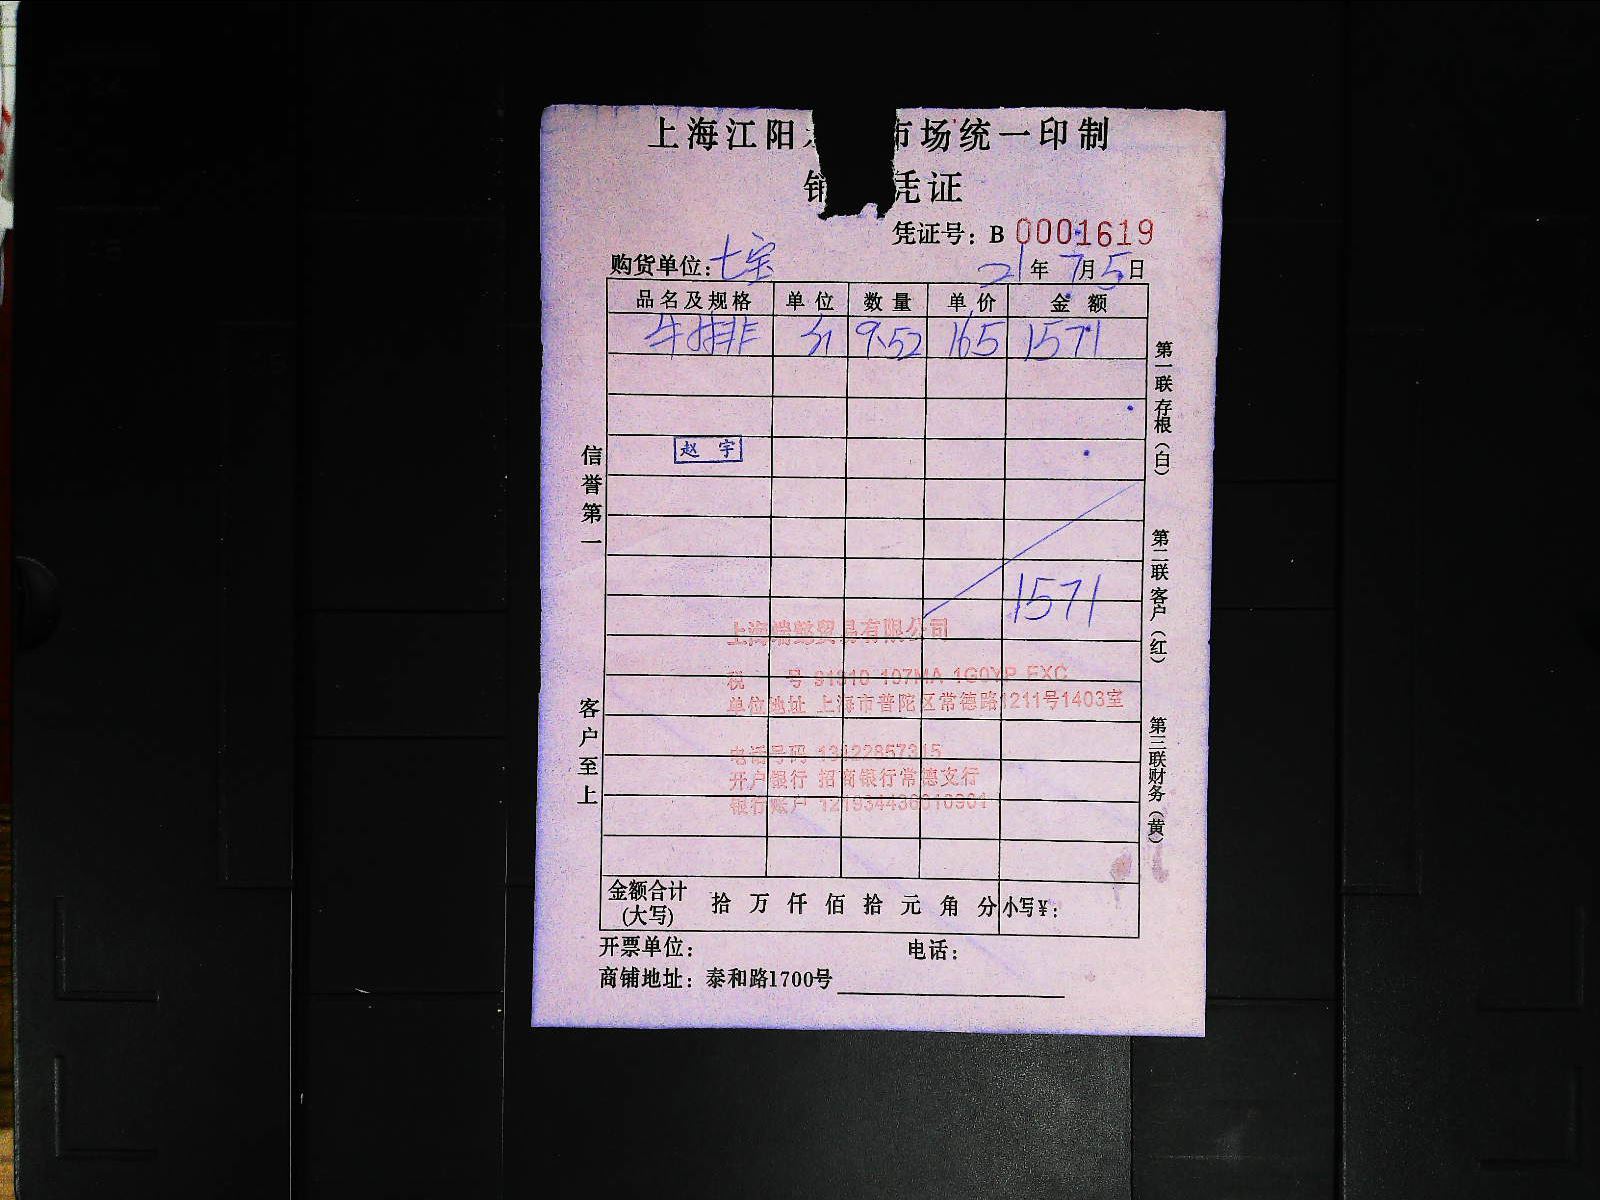 上海江阳 市场统一印制
销 凭证
凭证号：B 0001619
购货单位：七宝 21年7月5日
品名及规格 单位 数量 单价 金额
牛排 9.52 165 1571
赵宇
1571
上海端懿贸易有限公司
税号 91310 107MA 1G0YP EXC
单位地址 上海市普陀区常德路1211号1403室
电话号码 13122857315
开户银行 招商银行常德支行
银行账户
金额合计(大写) 拾 万 仟 佰 拾 元 角 分 小写¥：
开票单位： 电话：
商铺地址：泰和路1700号
信誉第一
客户至上
第一联 存根（白）
第二联 客户（红）
第三联 财务（黄）